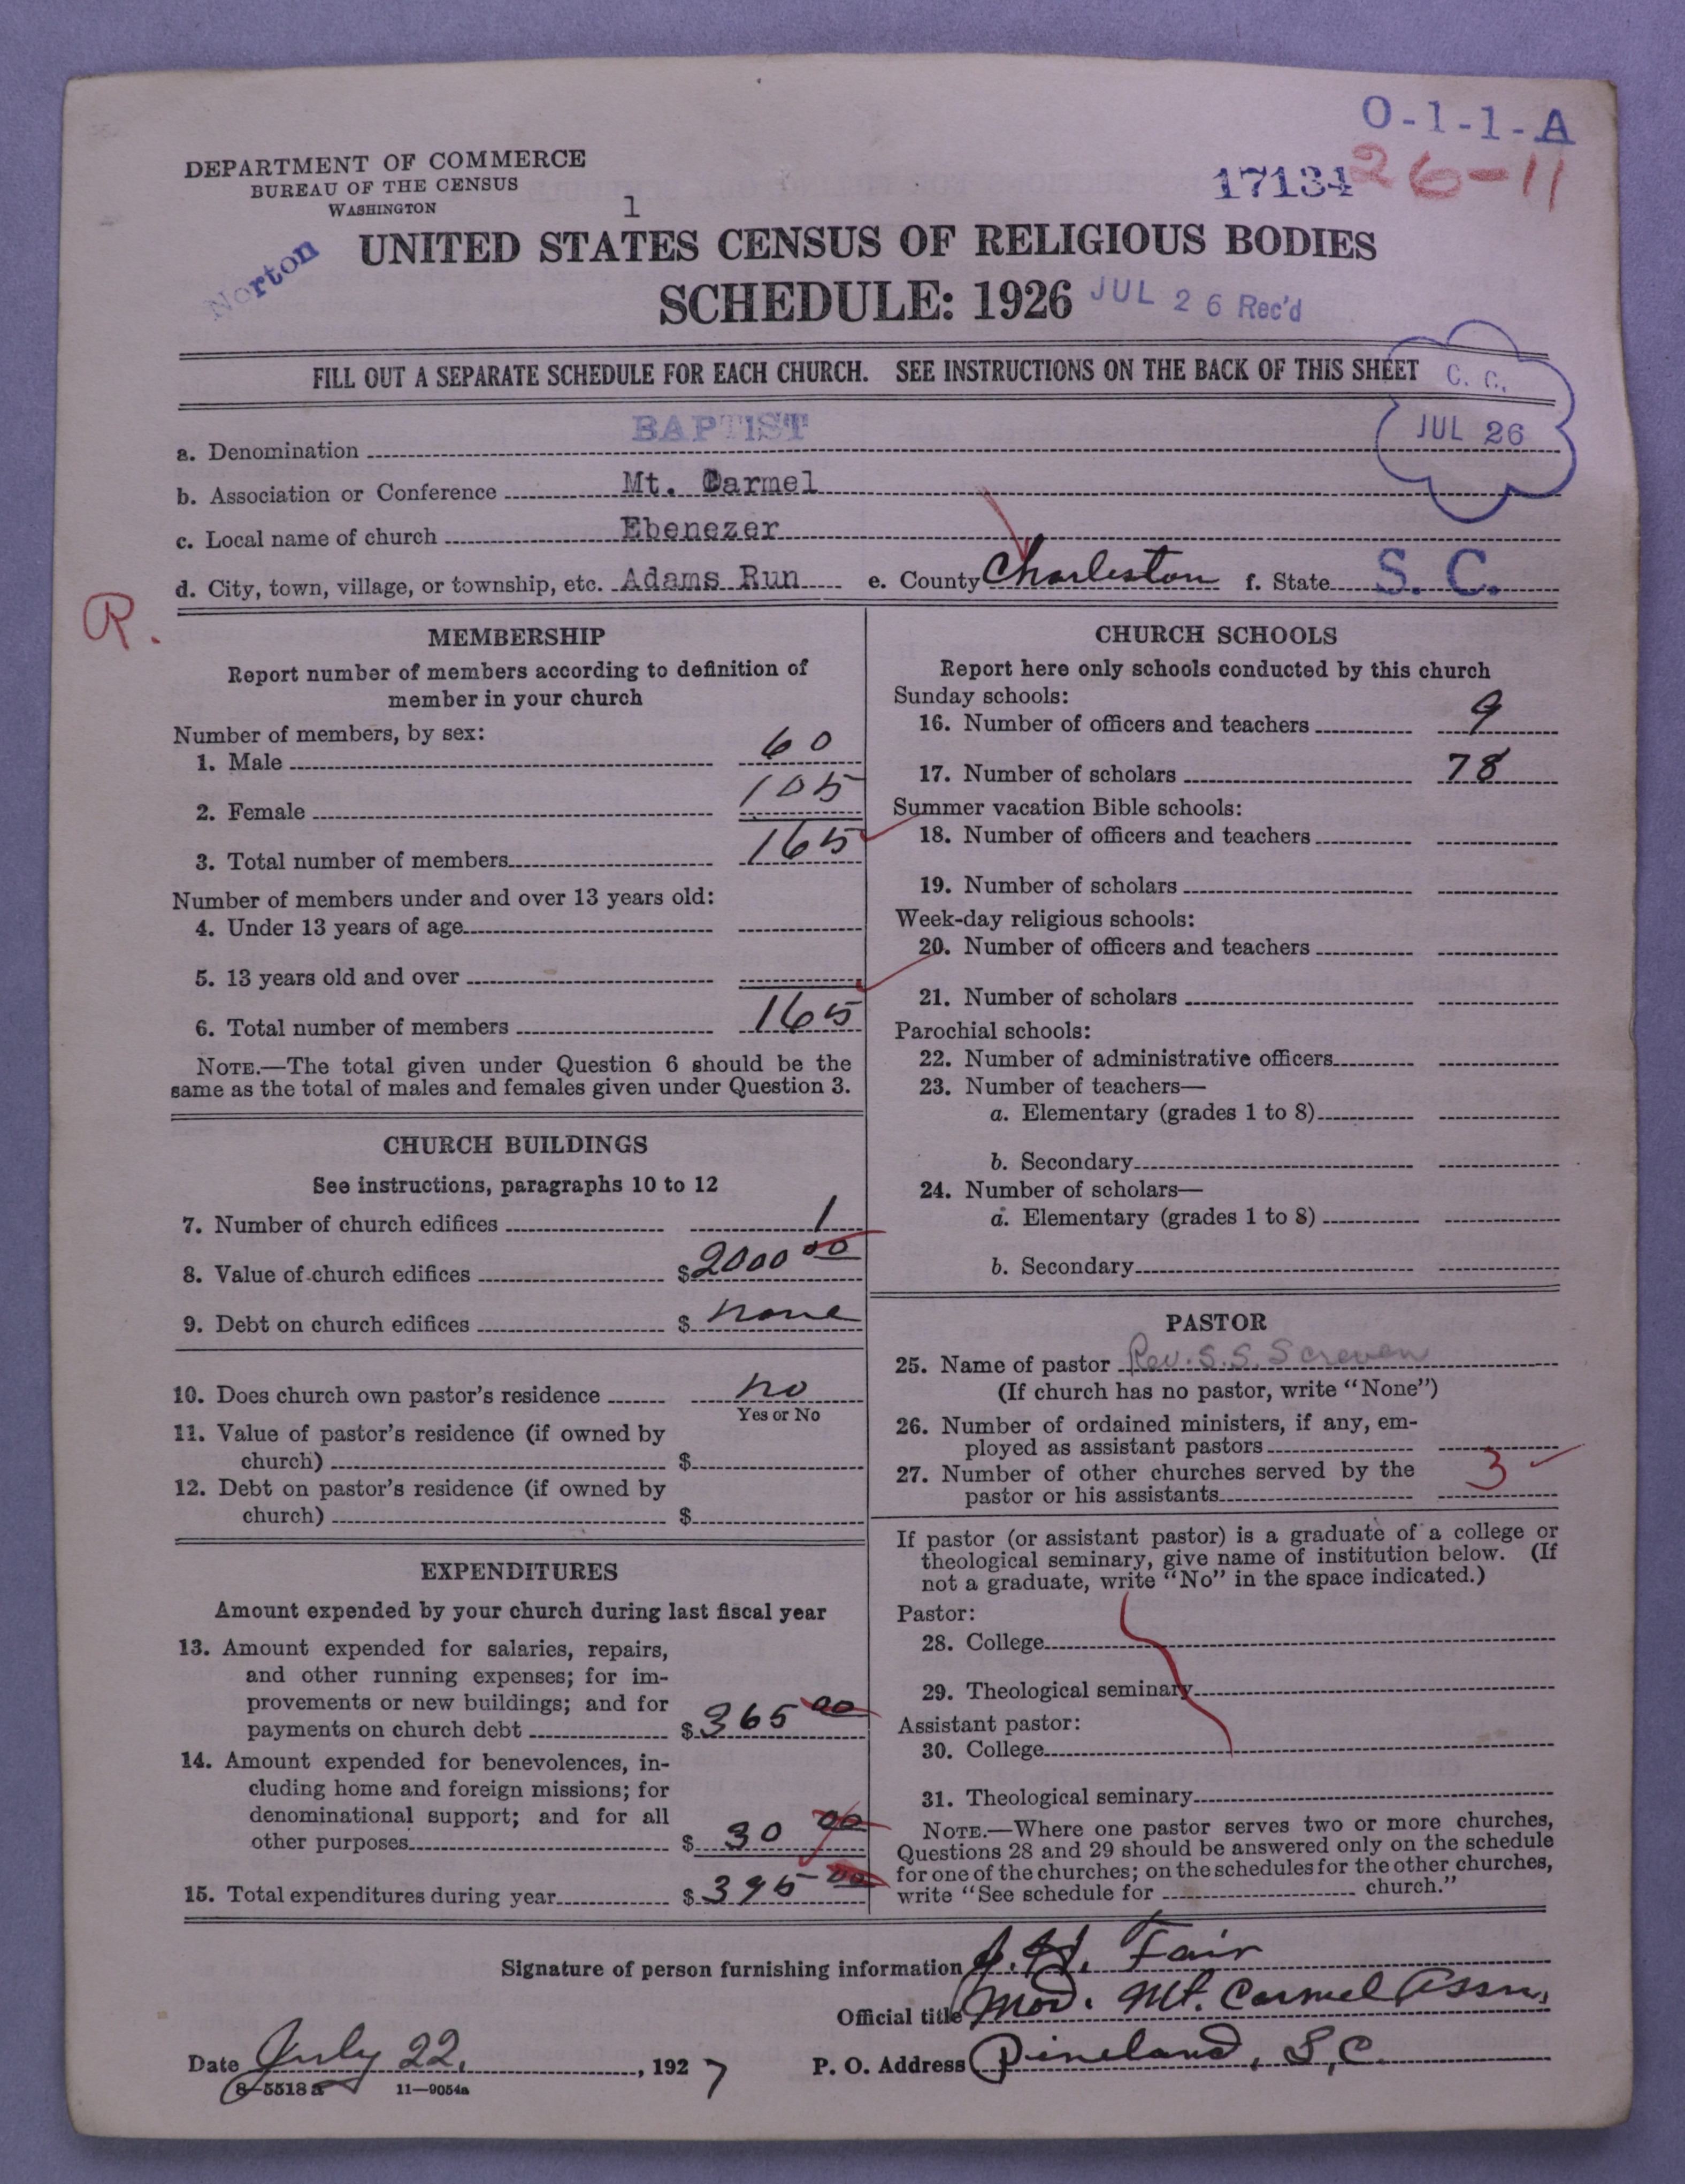 O-1-1-A
DEPARTMENT OF COMMERCE
BUREAU OF THE CENSUS
WASHINGTON
17134
26-11
1
Norton
UNITED STATES CENSUS OF RELIGIOUS BODIES
SCHEDULE: 1926
JUL 26 Rec'd
FILL OUT A SEPARATE SCHEDULE FOR EACH CHURCH. SEE INSTRUCTIONS ON THE BACK OF THIS SHEET
C. C.
JUL 26
a. Denomination BAPTIST
b. Association or Conference Mt. Carmel
c. Local name of church Ebenezer
d. City, town, village, or township, etc. Adams Run e. County Charleston f. State S. C.
R.
MEMBERSHIP
Report number of members according to definition of
member in your church
Number of members, by sex:
1. Male 60
2. Female 105
3. Total number of members 165
Number of members under and over 13 years old:
4. Under 13 years of age
5. 13 years old and over
6. Total number of members 165
NOTE.—The total given under Question 6 should be the
same as the total of males and females given under Question 3.
CHURCH BUILDINGS
See instructions, paragraphs 10 to 12
7. Number of church edifices 1
8. Value of church edifices $2000 00
9. Debt on church edifices $ none
10. Does church own pastor's residence no
Yes or No
11. Value of pastor's residence (if owned by
church) $
12. Debt on pastor's residence (if owned by
church) $
EXPENDITURES
Amount expended by your church during last fiscal year
13. Amount expended for salaries, repairs,
and other running expenses; for im-
provements or new buildings; and for
payments on church debt $365 00
14. Amount expended for benevolences, in-
cluding home and foreign missions; for
denominational support; and for all
other purposes $ 30 00
15. Total expenditures during year $395 00
CHURCH SCHOOLS
Report here only schools conducted by this church
Sunday schools:
16. Number of officers and teachers 9
17. Number of scholars 78
Summer vacation Bible schools:
18. Number of officers and teachers
19. Number of scholars
Week-day religious schools:
20. Number of officers and teachers
21. Number of scholars
Parochial schools:
22. Number of administrative officers
23. Number of teachers—
a. Elementary (grades 1 to 8)
b. Secondary
24. Number of scholars—
a. Elementary (grades 1 to 8)
b. Secondary
PASTOR
25. Name of pastor Rev. S. S. Screven
(If church has no pastor, write "None")
26. Number of ordained ministers, if any, em-
ployed as assistant pastors
27. Number of other churches served by the
pastor or his assistants 3
If pastor (or assistant pastor) is a graduate of a college or
theological seminary, give name of institution below. (If
not a graduate, write "No" in the space indicated.)
Pastor:
28. College
29. Theological seminary
Assistant pastor:
30. College
31. Theological seminary
NOTE.—Where one pastor serves two or more churches,
Questions 28 and 29 should be answered only on the schedule
for one of the churches; on the schedules for the other churches,
write "See schedule for church."
Signature of person furnishing information J. H. Fair
Official title Mod. Mt. Carmel Assn.
Date July 22, 1927 P. O. Address Pineland, S.C.
8—5518a 11—9054a